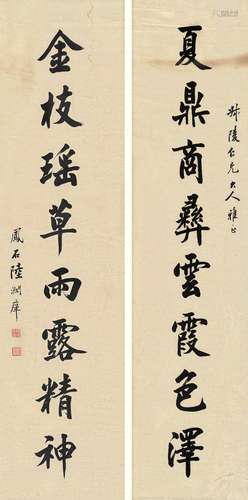 夏鼎商彝雲霞色澤
仁兄大人雅正
金枝瑶草雨露精神
鳳石陸潤庠